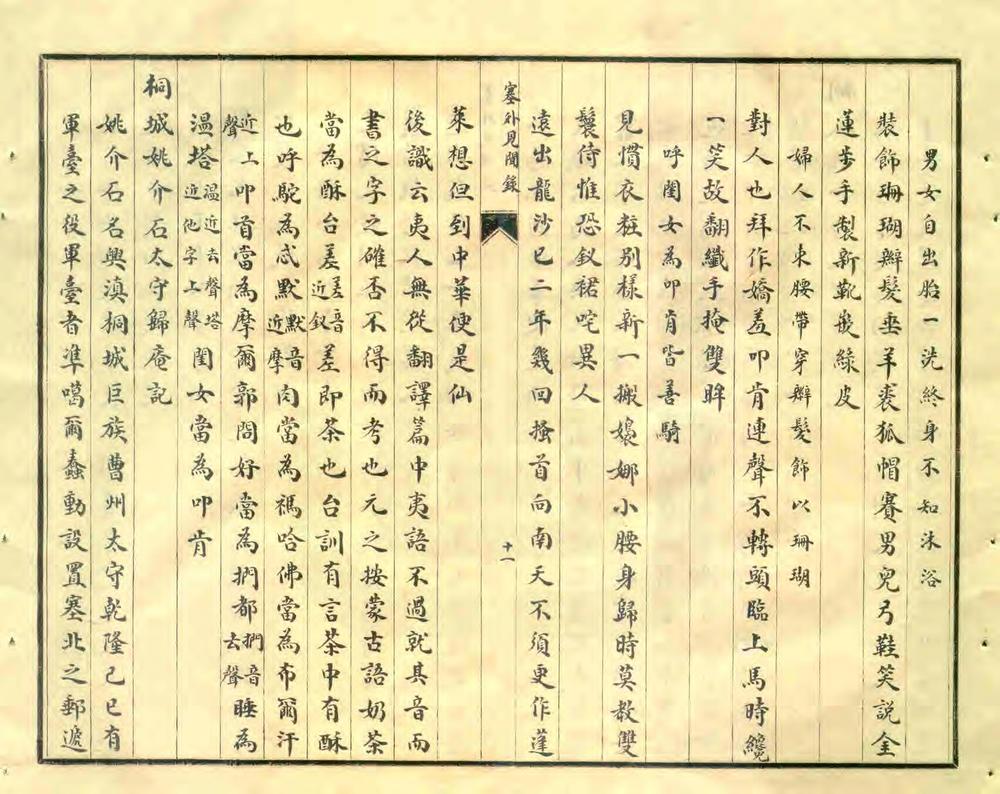 男女自出胎一洗終身不知沐浴
裝飾珊瑚辮髮垂羊裘狐帽賽男兒弓鞋笑說金
蓮步手製新靴嵌綠皮
婦人不束腰帶穿辮髮飾以珊瑚
對人也拜作嬌羞叩肯連聲不轉頭臨上馬時纔
一笑故翻纖手掩雙眸
呼閨女為叩肯皆善騎
見慣衣粧別樣新一搬嬝娜小腰身歸時莫教雙
鬟侍惟恐釵裙咤異人
遠出龍沙已二年幾回搔首向南天不須更作蓬
塞外見聞錄
十一
萊想但到中華便是仙
後識云夷人無從翻譯篇中夷語不過就其音而
書之字之確否不得而考也元之按蒙古語奶茶
當為酥台差差音近釵差即茶也台訓有言茶中有酥
也呼駝為忒默默音近摩肉當為禡哈佛當為布爾汗
近上聲叩首當為摩爾郭問好當為捫都捫音去聲睡為
溫塔溫近去聲塔近他字上聲閨女當為叩肯
桐城姚介石太守歸庵記
姚介石名興滇桐城巨族曹州太守乾隆己巳有
軍臺之役軍臺者準噶爾蠢動設置塞北之郵遞